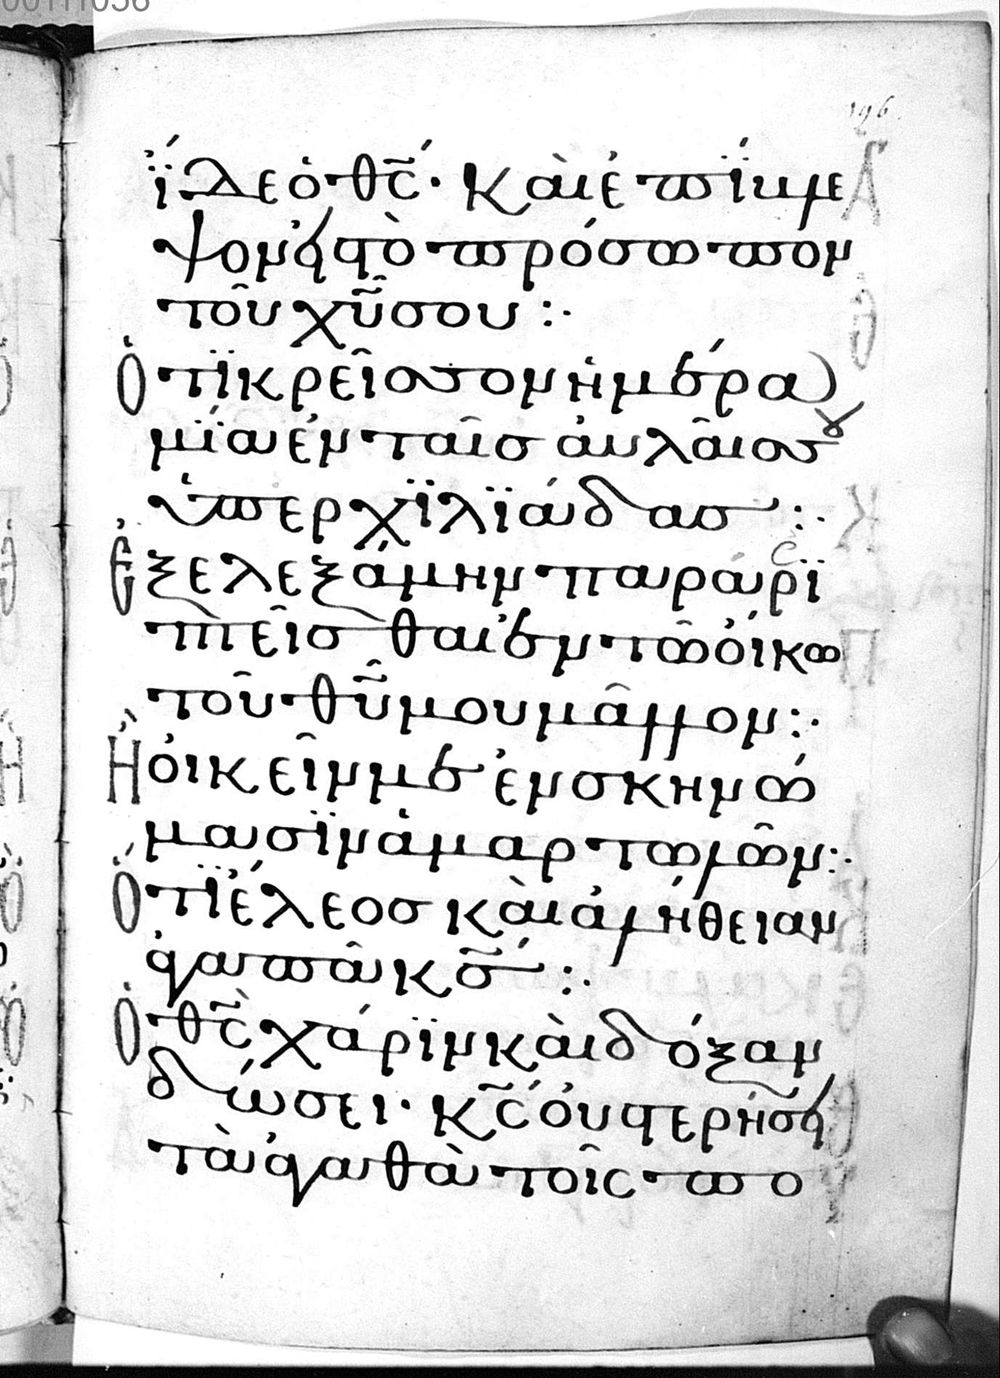 00111056
196
ἴδε ὁ θς̅· καὶ ἐπίβλε
ψον εἰς τὸ πρόσωπον
τοῦ χῦ σου :·
Ὅτι κρεῖσσον ἡμέρα
μία ἐν ταῖς αὐλαῖς σου
ὑπὲρ χιλιάδας :·
Ἐξελεξάμην παραρι
πτεῖσθαι ἐν τῶ οἴκω
τοῦ θῦ μου μᾶλλον :·
Ἢ οἰκεῖν με ἐν σκηνώ
μασιν ἁμαρτωλῶν :·
Ὅτι ἔλεος καὶ ἀλήθειαν
ἀγαπᾶ κς̅ :·
Ὁ θς̅ χάριν καὶ δόξαν
δώσει· κς̅ οὐ στερήσει
τὰ ἀγαθὰ τοῖς πο